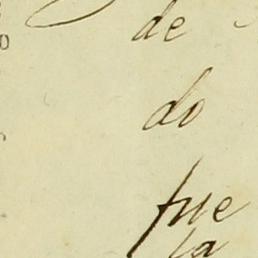 de
do
fue
la